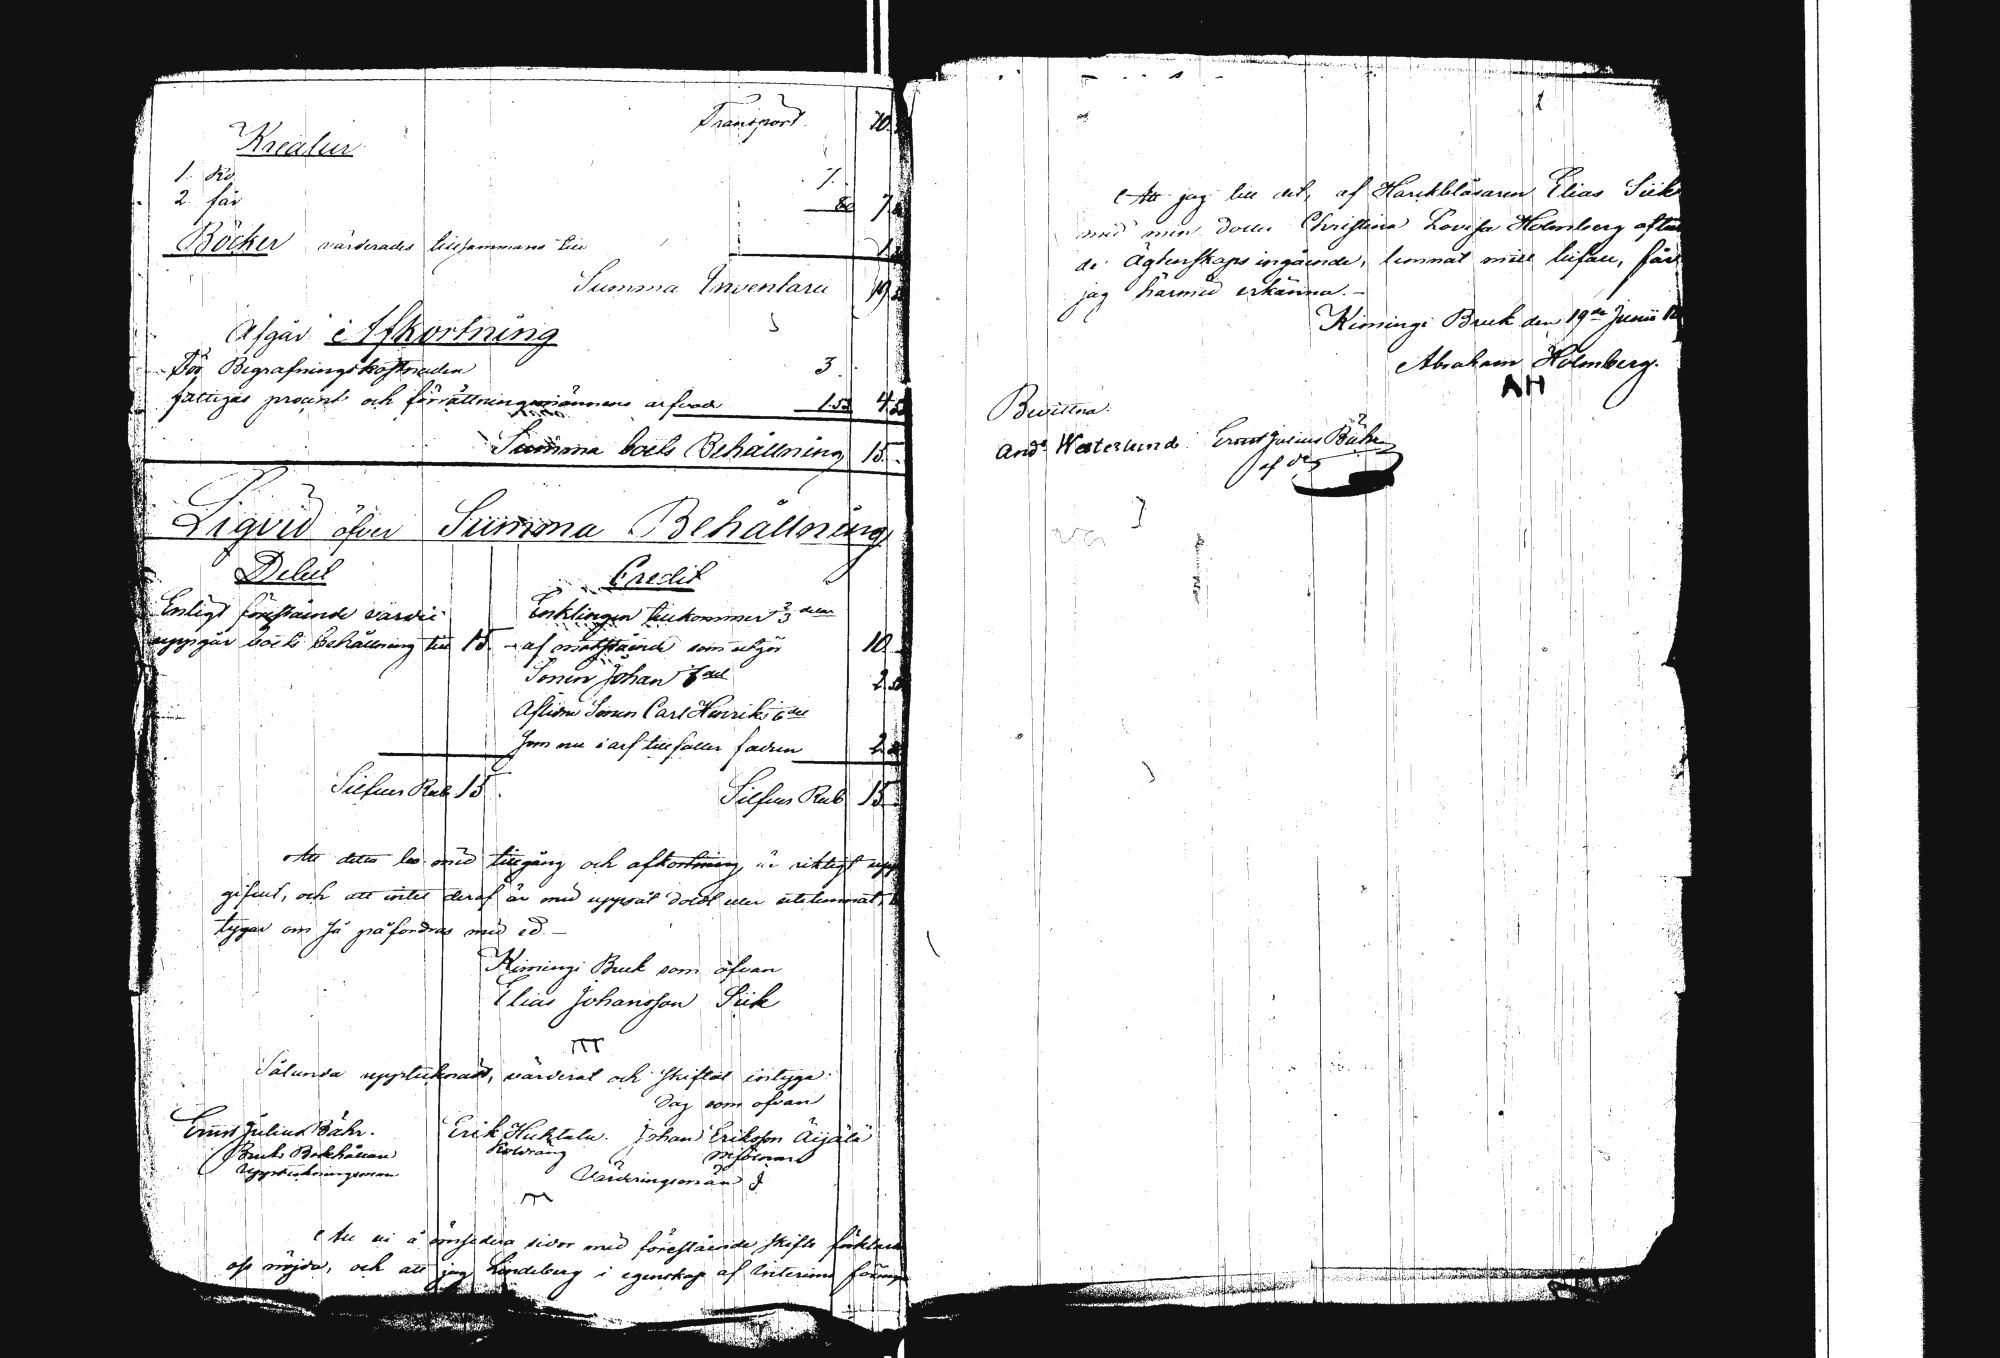 Transport. 10.
Kreatur
1. Ko 7.
2. får 80 7.
Böcker värderades tillsammans till 1.
Summa Inventarii 19.
Afgår i Afkortning
För Begrafningskostnaden 3.
fattigas procent och förrättningsmännens arfvode 1.53 4.53
Summa boets Behållning 15.
Liqvid öfver Summa Behållning
Debet Credit
Enligt förestående värde Enklingen tillkommer 2/3 delar
uppgår boets behållning till 15. af motstående som utgör 10.
Sonen Johan 6 del 2.50
Aflidne Sonen Carl Henriks 6 del
som nu i arf tillfaller fadren 2.50
Silfver Rub 15. Silfver Rub 15.
Att detta bo med tillgång och afkortning är riktigt upp
gifvet, och att intet deraf är med uppsåt doldt eller utelemnat,
tygar om så påfordras med ed. –
Kimingi Bruk som ofvan
Elias Johansson Siik
Sålunda upptecknadt, värderat och skiftat intyga:
Dag som ofvan
Ernst Julius Bähr. Erik Huhtala. Johan Eriksson Äijälä
Bruks Bokhållare
Uppteckningsman Värderingsmän
Att vi å ömsedera sidor med förestående skifte förklara
oss nöjda, och att jag Lindeberg i egenskap af Interims förmyn
2
Att jag till det, af Harckblåsaren Elias Siik
med min dotter Christina Lovisa Holmberg aftal
de Ägtenskaps ingående, lemnat mitt bifall, får
jag härmed erkänna. –
Kimingi Bruk den 19de Junii 18
Abraham Holmberg.
AH
Bevittna:
And: Westerlund Ernst Julius Bähr